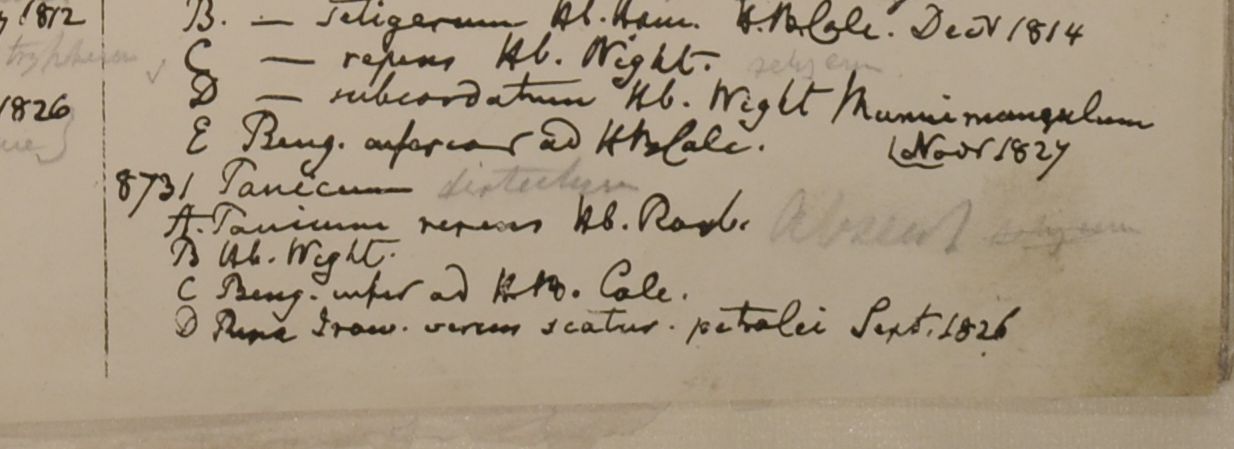 y 1812
B. — setigerum Hb. Ham. H.B.Calc. Decr 1814
C — repens Hb. Wight.
1826
D — subcordatum Hb. Wight Munnimungulum
E Beng. inferior ad HBCalc. (Novr 1827
8731 Panicum distachyum
A. Panicum repens Hb. Roxb. Absent
B Hb. Wight.
C Beng. infer ad H.B. Calc.
D Ripa Iraw. versus scatur. petrolei Sept. 1826